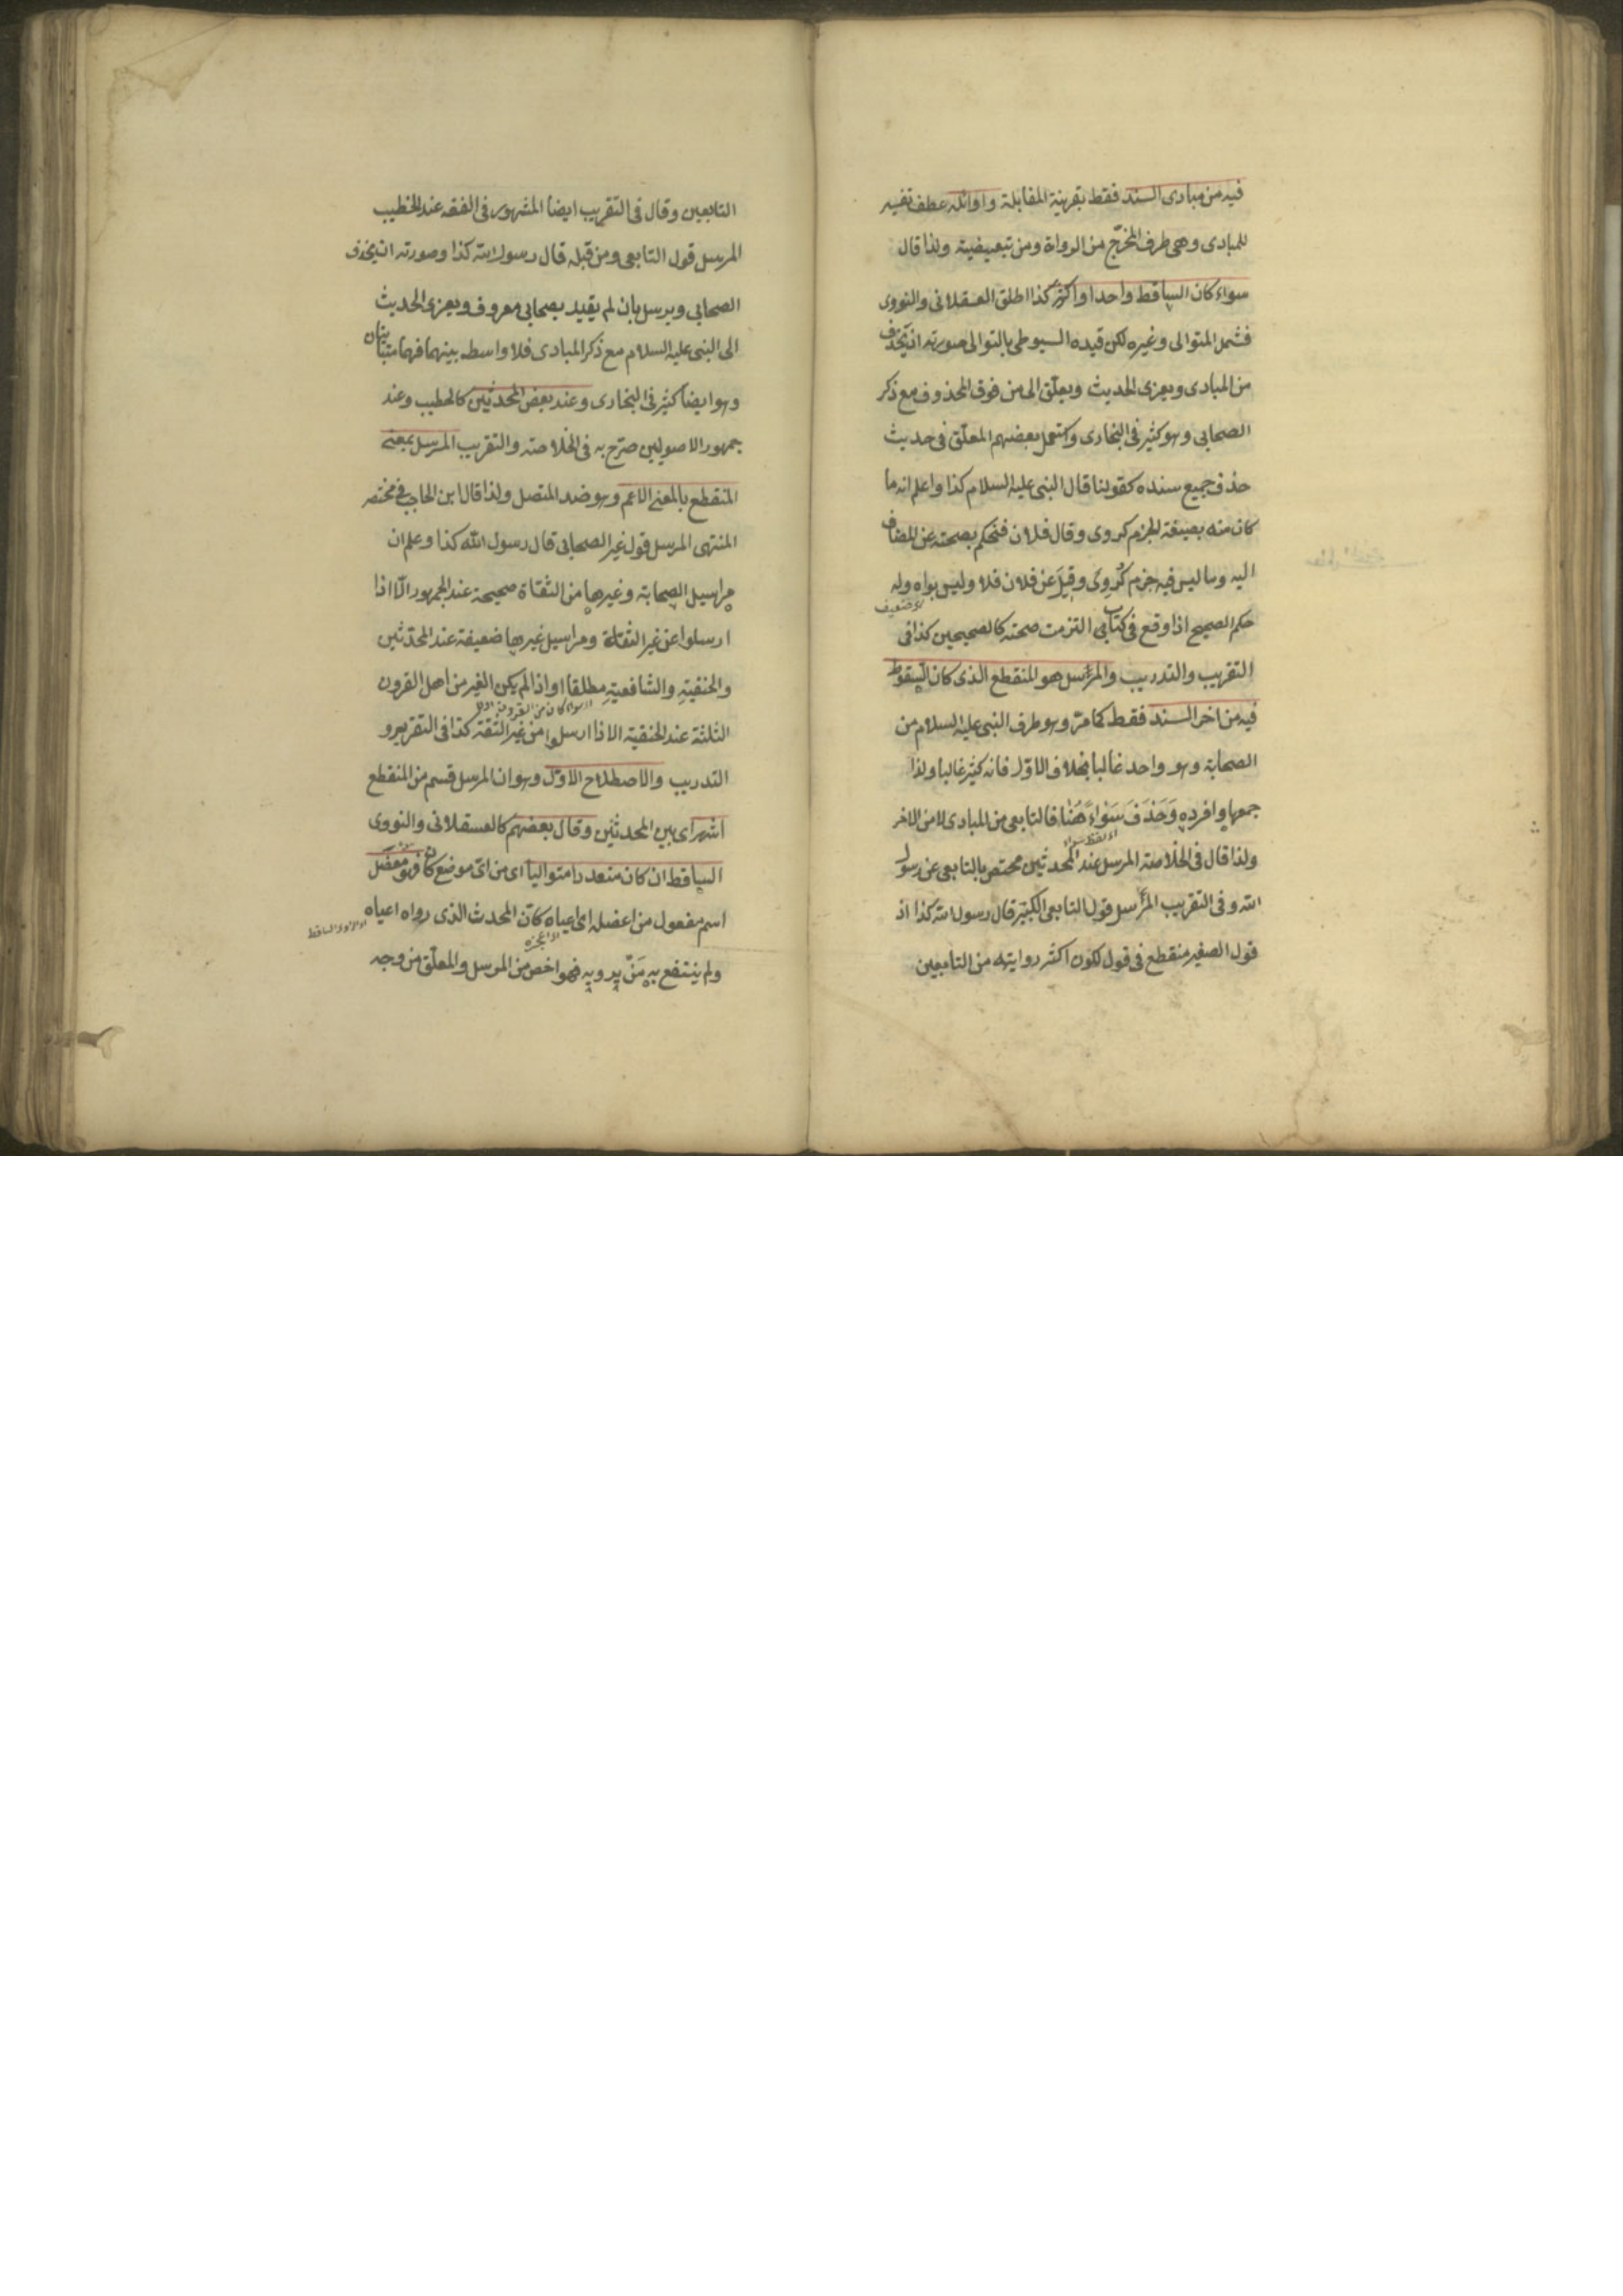 فيه من مبادى السند فقط بقرينة المقابلة واوائله عطف تفسير
للمبادى وهى طرف المخرّج من الرواة ومن تبعيضية ولذا قال
سواء كان الساقط واحدا او اكثر كذا اطلق العسقلانى والنووى
فشمل المتوالى وغيره لكن قيده السيوطى بالتوالى صورته ان يحذف
من المبادى ويعزى الحديث ويعلّق الى من فوق المحذوف مع ذكر
الصحابى وهو كثير فى البخارى واستعمل بعضهم المعلّق فى حديث
حذف جميع سنده كقولنا قال النبى عليه السلام كذا واعلم انه ما
كان منه بصيغة الجزم كروى وقال فلان فنحكم بصحته عن المضاف
اليه وما ليس فيه جزم كرُوِىَ وقيلَ عن فلان فلا وليس بواه وله
حكم الصحيح اذا وقع فى كتاب التزمت صحته كالصحيحين كذا فى
التقريب والتدريب والمرسل هو المنقطع الذى كان السقوط
فيه من اخر السند فقط كما مرّ وهو طرف النبى عليه السلام من
الصحابة وهو واحد غالبا بخلاف الاوّل فانه كثير غالبا ولذا
جمعها وافرده وَحَذَفَ سَوَاءً هُنَا فالتابعى من المبادى لا من الاخر
اى لفظ سواء
ولذا قال فى الخلاصة المرسل عند المحدثين مختص بالتابعى عن رسول
الله وفى التقريب المرسل قول التابعى الكبير قال رسول الله كذا اذ
قول الصغير منقطع فى قول لكون اكثر روايته من التابعين
التابعين وقال فى التقريب ايضا المشهور فى الفقه عند الخطيب
المرسل قول التابعى ومن قبله قال رسول الله كذا وصورته ان يحذف
الصحابى ويرسل بان لم يقيد بصحابى معروف ويعزى الحديث
الى النبى عليه السلام مع ذكر المبادى فلا واسطه بينهما فهما متباينان
وهو ايضا كثير فى البخارى وعند بعض المحدثين كالخطيب وعند
جمهور الاصوليين صرّح به فى الخلاصة والتقريب المرسل بمعنى
المنقطع بالمعنى الاعم وهو ضد المتصل ولذا قال ابن الحاجب فى مختصر
المنتهى المرسل قول غير الصحابى قال رسول الله كذا وعلم ان
مراسيل الصحابة وغيرها من الثقاة صحيحة عند الجمهور الّا اذا
ارسلوا عن غير الثقاة ومراسيل غيرها ضعيفة عند المحدّثين
والحنفيّةِ والشافعيّةِ مطلقا او اذا لم يكن الغير من اهل القرون
الثلثة عند الحنفية الا اذا ارسلوا من غير الثقة كذا فى التقرير و
التدريب والاصطلاح الاوّل وهو ان المرسل قسم من المنقطع
اشهر اى بين المحدثين وقال بعضهم كالعسقلانى والنووى
الساقط ان كان متعددا متواليا اى من اىّ موضع كان فهو معضَل
اسم مفعول من اعضله اى اعياه كانّ المحدث الذى رواه اعياه
اى اعجزه
ولم ينتفع به مَنْ يرويه فهو اخص من المرسل والمعلّق من وجه